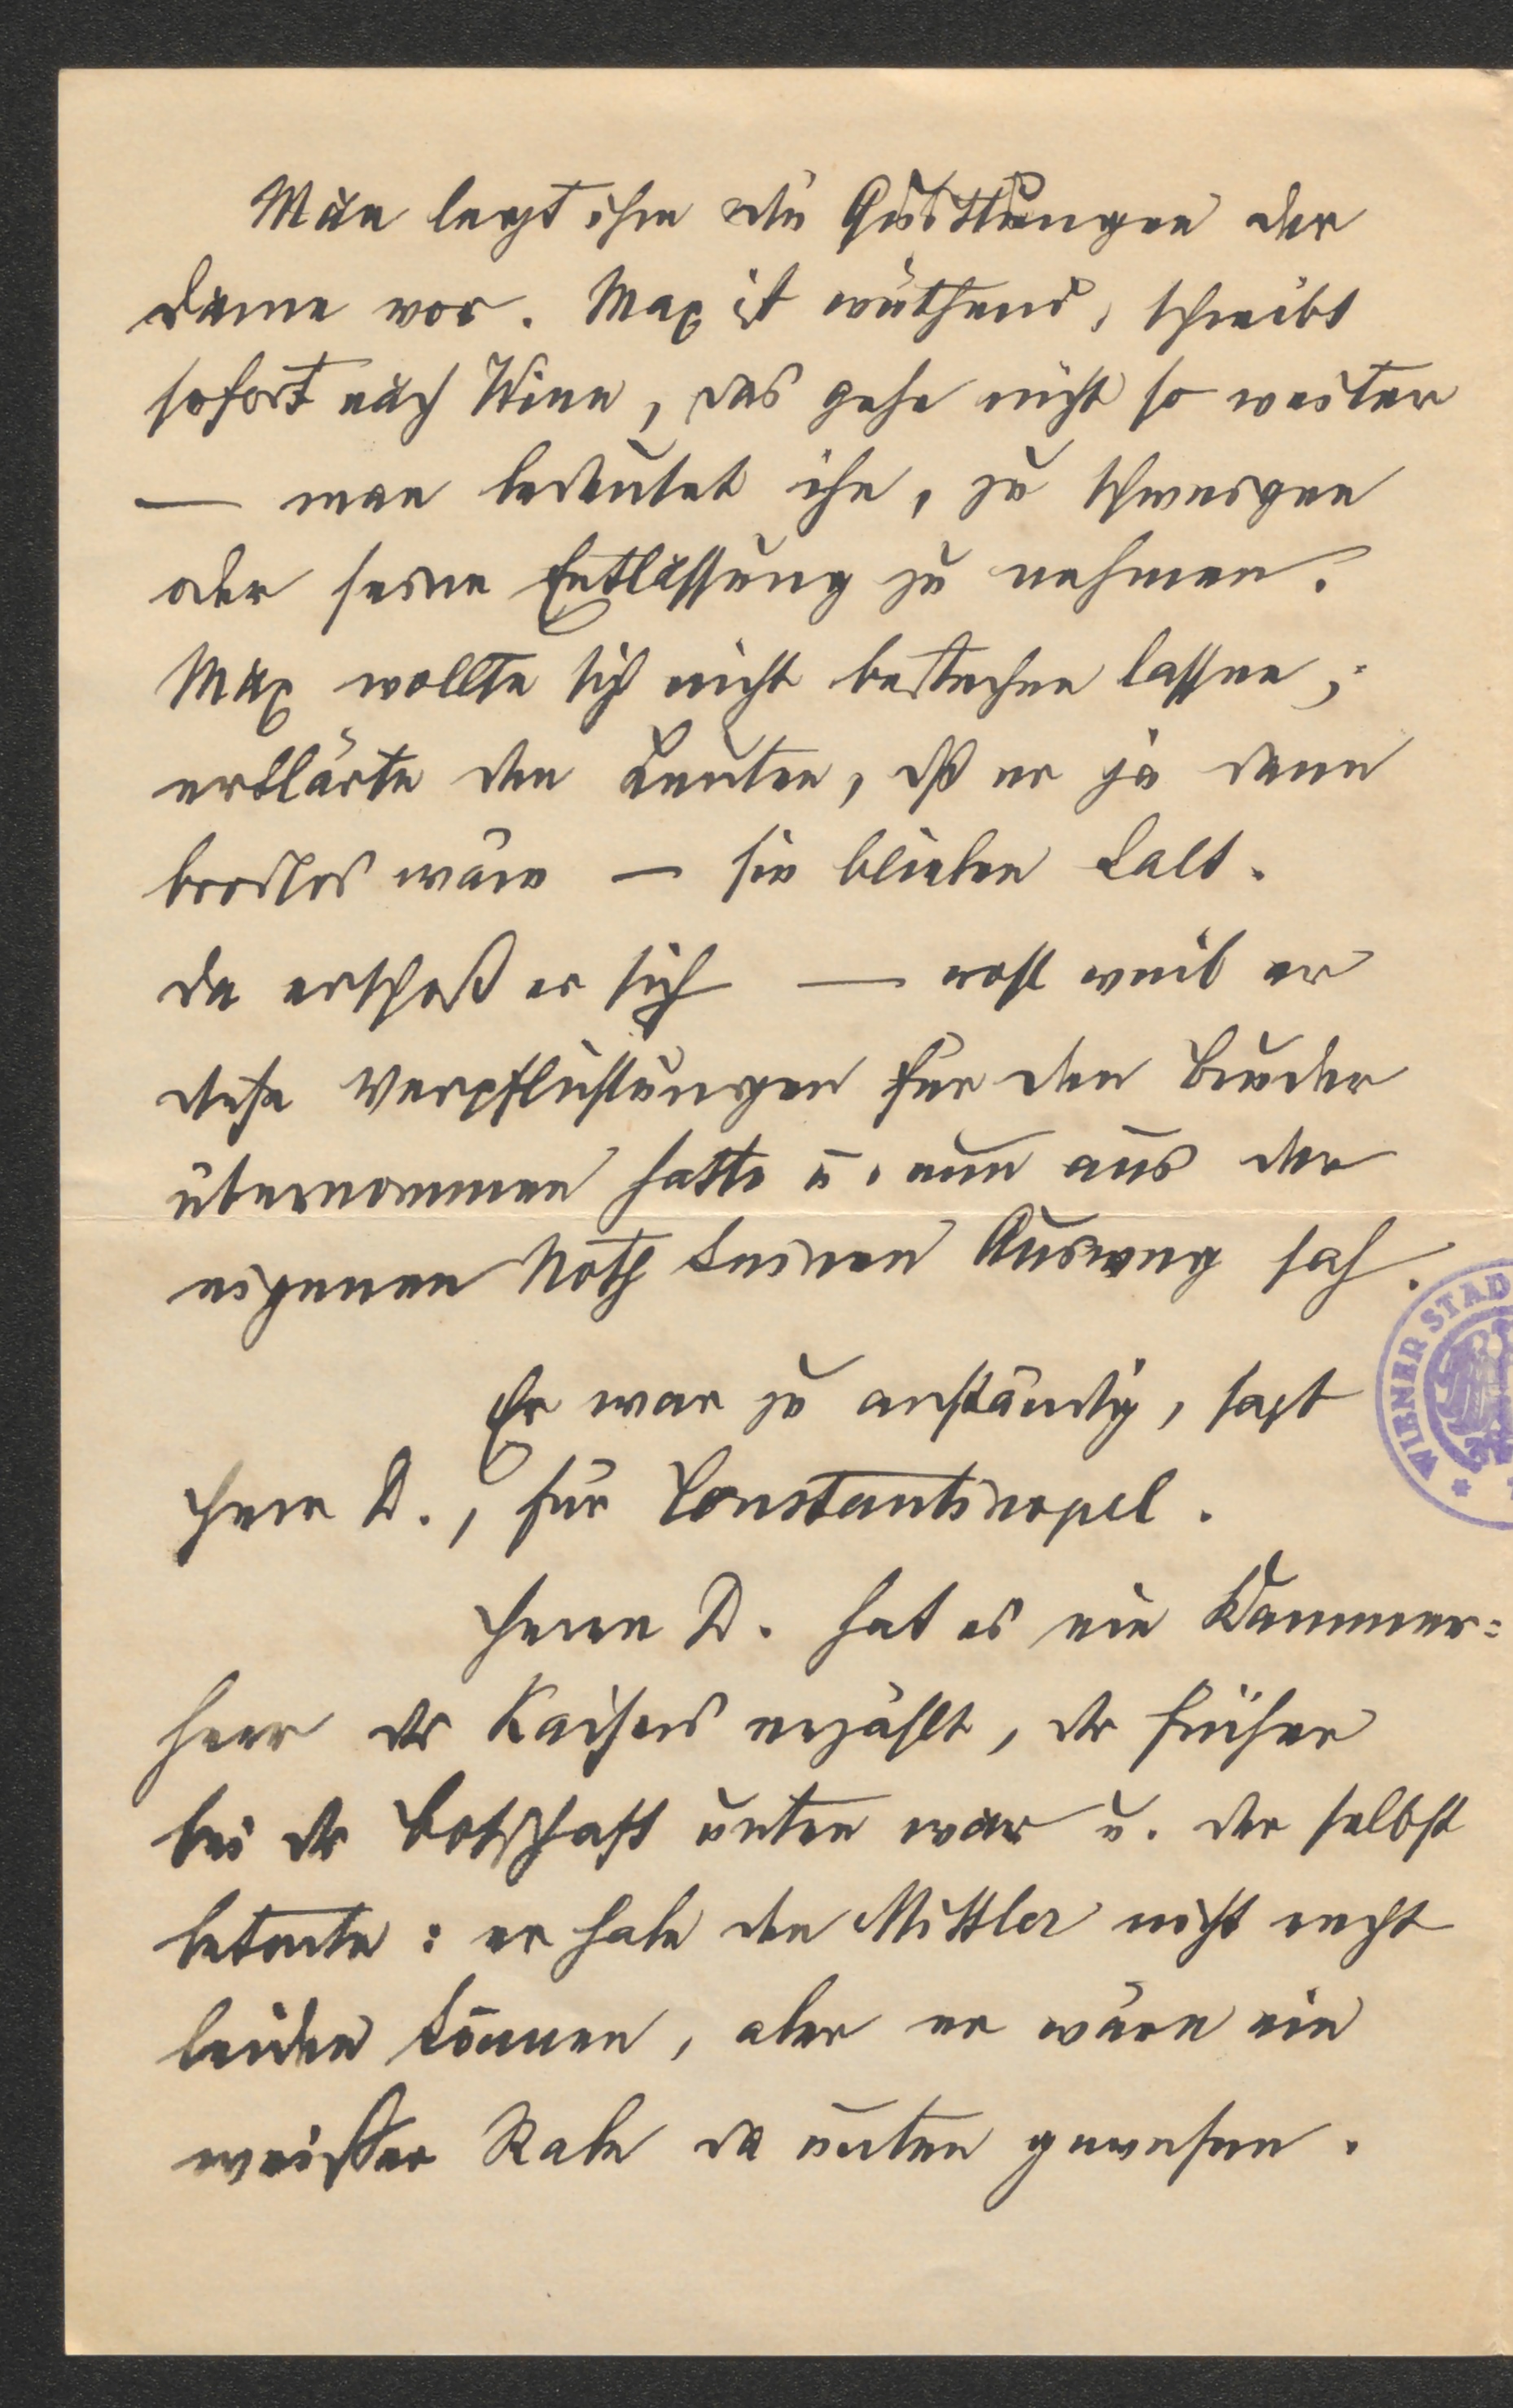 Man legt ihm die Quittungen der
Dame vor. Max ist wüthend, schreibt
sofort nach Wien, das gehe nicht so weiter
— man bedeutet ihn, zu schweigen
oder seine Entlassung zu nehmen.
Max wollte sich nicht bestechen lassen;
erklärte den Leuten, dß er ja dann
brodlos wäre — sie blieben kalt.
Da erschoß er sich — wohl weil er
diese Verpflichtungen für den Bruder
übernommen hatte u. nun aus der
eigenen Noth keinen Ausweg sah.
Er war zu anständig, sagt
Herr D., für Constantinopel.
Herrn D. hat es ein Kammer=
herr des Kaisers erzählt, der früher
bei der Botschaft unten war u. der selbst
betonte: er habe den Mittler nicht recht
leiden können, aber er wäre ein
weisser Rabe da unten gewesen.
WIENER STAD